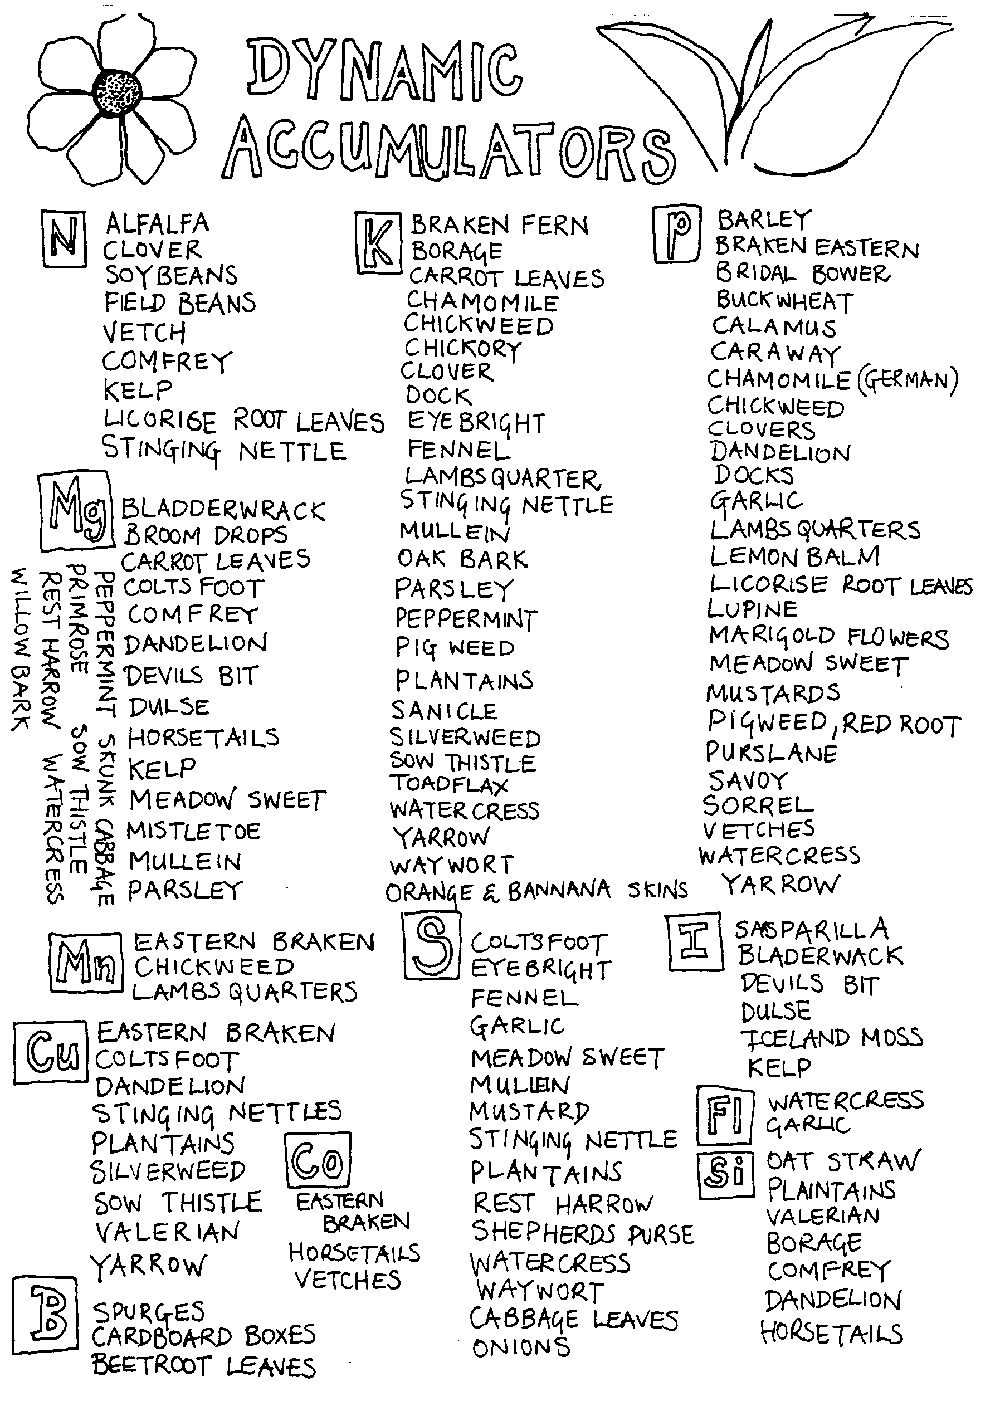 DYNAMIC
ACCUMULATORS
N
ALFALFA
CLOVER
SOYBEANS
FIELD BEANS
VETCH
COMFREY
KELP
LICORISE ROOT LEAVES
STINGING NETTLE
Mg
BLADDERWRACK
BROOM DROPS
CARROT LEAVES
COLTS FOOT
COMFREY
DANDELION
DEVILS BIT
DULSE
HORSETAILS
KELP
MEADOW SWEET
MISTLETOE
MULLEIN
PARSLEY
PEPPERMINT SKUNK CABBAGE
PRIMROSE SOW THISTLE
REST HARROW WATERCRESS
WILLOW BARK
Mn
EASTERN BRAKEN
CHICKWEED
LAMBS QUARTERS
Cu
EASTERN BRAKEN
COLTS FOOT
DANDELION
STINGING NETTLES
PLANTAINS
SILVERWEED
SOW THISTLE
VALERIAN
YARROW
Co
EASTERN
BRAKEN
HORSETAILS
VETCHES
B
SPURGES
CARDBOARD BOXES
BEETROOT LEAVES
K
BRAKEN FERN
BORAGE
CARROT LEAVES
CHAMOMILE
CHICKWEED
CHICKORY
CLOVER
DOCK
EYEBRIGHT
FENNEL
LAMBS QUARTER
STINGING NETTLE
MULLEIN
OAK BARK
PARSLEY
PEPPERMINT
PIG WEED
PLANTAINS
SANICLE
SILVERWEED
SOW THISTLE
TOADFLAX
WATERCRESS
YARROW
WAYWORT
ORANGE & BANNANA SKINS
S
COLTSFOOT
EYEBRIGHT
FENNEL
GARLIC
MEADOW SWEET
MULLEIN
MUSTARD
STINGING NETTLE
PLANTAINS
REST HARROW
SHEPHERDS PURSE
WATERCRESS
WAYWORT
CABBAGE LEAVES
ONIONS
P
BARLEY
BRAKEN EASTERN
BRIDAL BOWER
BUCKWHEAT
CALAMUS
CARAWAY
CHAMOMILE (GERMAN)
CHICKWEED
CLOVERS
DANDELION
DOCKS
GARLIC
LAMBS QUARTERS
LEMON BALM
LICORISE ROOT LEAVES
LUPINE
MARIGOLD FLOWERS
MEADOW SWEET
MUSTARDS
PIGWEED, RED ROOT
PURSLANE
SAVOY
SORREL
VETCHES
WATERCRESS
YARROW
I
SASPARILLA
BLADERWACK
DEVILS BIT
DULSE
ICELAND MOSS
KELP
Fl
WATERCRESS
GARLIC
Si
OAT STRAW
PLAINTAINS
VALERIAN
BORAGE
COMFREY
DANDELION
HORSETAILS